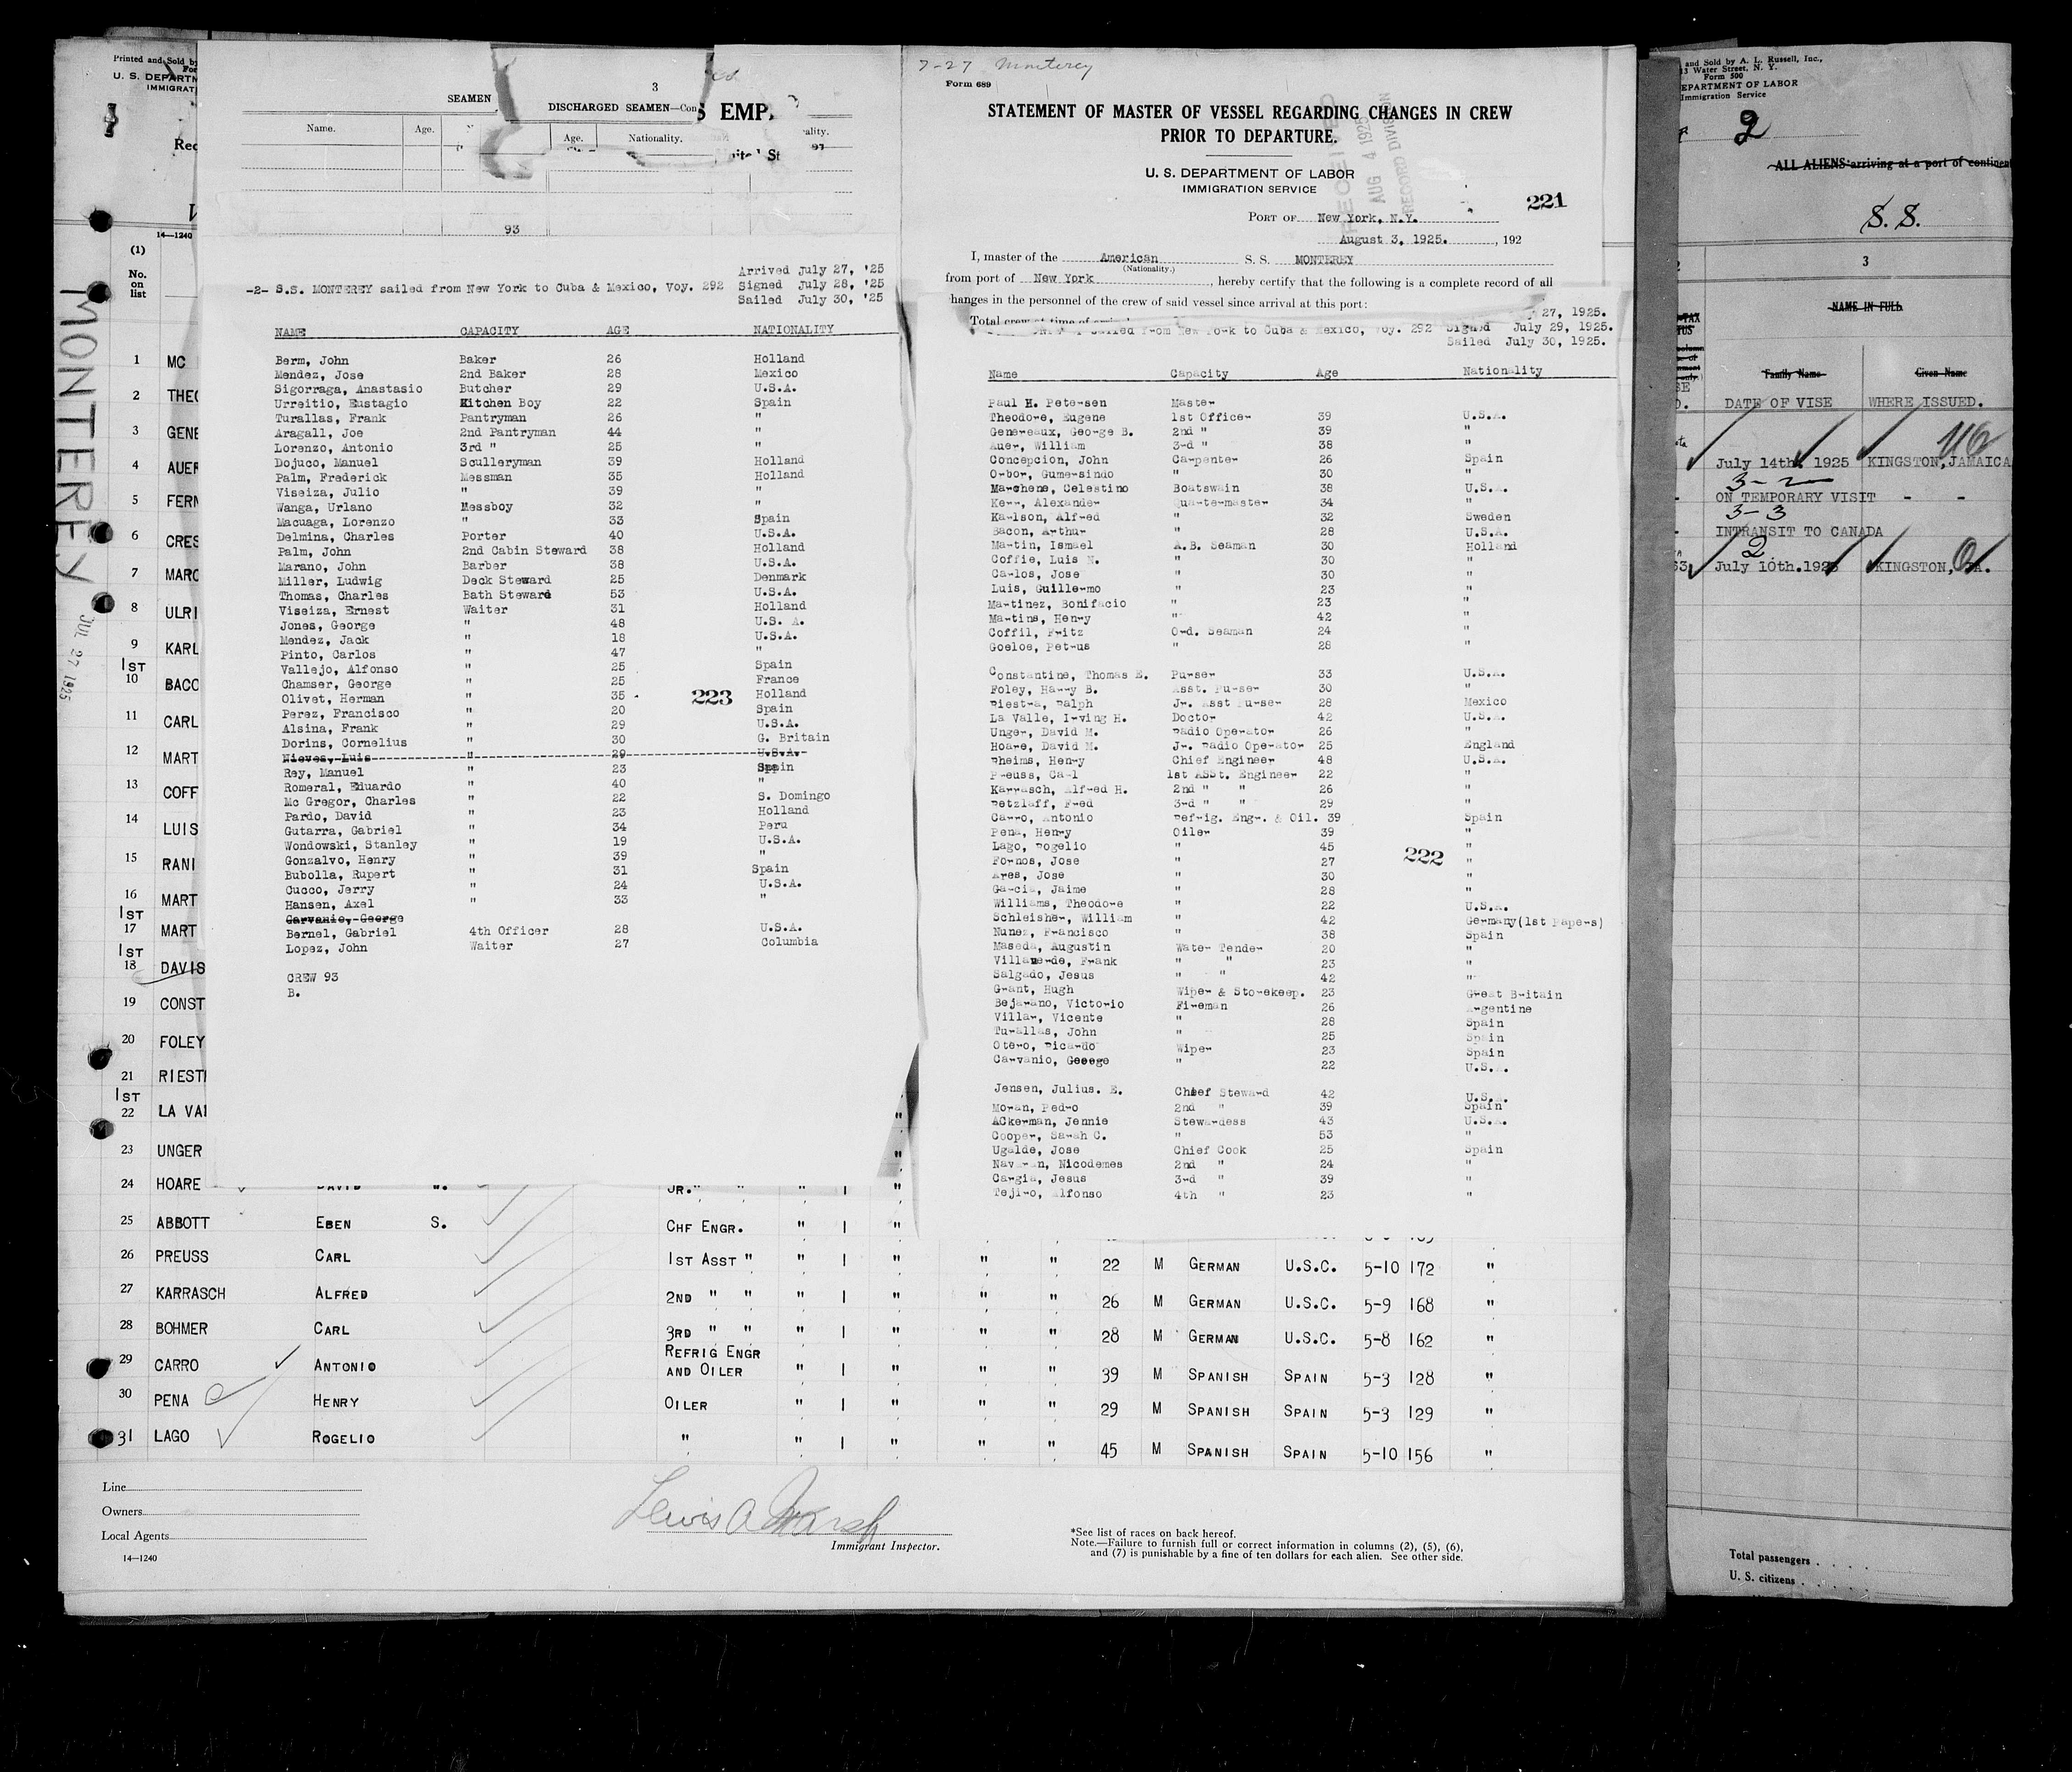 Printed and Sold by
U. S. DEPARTM
IMMIGRAT
14—1240
(1)
No.
on
list
MONTEREY
JUL 27 1925
1 MC
2 THEO
3 GENE
4 AUER
5 FERN
6 CRES
7 MARC
8 ULRI
9 KARL
1ST
10 BACO
11 CARL
12 MART
13 COFF
14 LUIS
15 RANI
16 MART
1ST
17 MART
1ST
18 DAVIS
19 CONST
20 FOLEY
21 RIEST
1ST
22 LA VA
23 UNGER
24 HOARE DAVID W. JR. " " " 1 "
25 ABBOTT EBEN S. CHF ENGR. " 1 "
26 PREUSS CARL 1ST ASST " " 1 " " " 22 M GERMAN U.S.C. 5-10 172 "
27 KARRASCH ALFRED 2ND " " " 1 " " " 26 M GERMAN U.S.C. 5-9 168 "
28 BOHMER CARL 3RD " " " 1 " " " 28 M GERMAN U.S.C. 5-8 162 "
REFRIG ENGR
29 CARRO ANTONIO AND OILER " 1 " " " 39 M SPANISH SPAIN 5-3 128 "
30 PENA HENRY OILER " 1 " " " 29 M SPANISH SPAIN 5-3 129 "
31 LAGO ROGELIO " " 1 " " " 45 M SPANISH SPAIN 5-10 156 "
Line
Owners
Local Agents
14—1240
Lewis A Marsh
Immigrant Inspector.
*See list of races on back hereof.
Note.—Failure to furnish full or correct information in columns (2), (5), (6),
and (7) is punishable by a fine of ten dollars for each alien. See other side.
SEAMEN
3
DISCHARGED SEAMEN—Con
S EMP
Name. Age.
Age. Nationality.
93
Arrived July 27, '25
-2- S.S. MONTEREY sailed from New York to Cuba & Mexico, Voy. 292 Signed July 28, '25
Sailed July 30, '25
NAME CAPACITY AGE NATIONALITY
Berm, John Baker 26 Holland
Mendez, Jose 2nd Baker 28 Mexico
Sigorraga, Anastasio Butcher 29 U.S.A.
Urreitio, Eustagio Kitchen Boy 22 Spain
Turallas, Frank Pantryman 26 "
Aragall, Joe 2nd Pantryman 44 "
Lorenzo, Antonio 3rd " 25 "
Dojuco, Manuel Sculleryman 39 Holland
Palm, Frederick Messman 35 Holland
Viseiza, Julio " 39 "
Wanga, Urlano Messboy 32 "
Macuaga, Lorenzo " 33 Spain
Delmina, Charles Porter 40 U.S.A.
Palm, John 2nd Cabin Steward 38 Holland
Marano, John Barber 38 U.S.A.
Miller, Ludwig Deck Steward 25 Denmark
Thomas, Charles Bath Steward 53 U.S.A.
Viseiza, Ernest Waiter 31 Holland
Jones, George " 48 U.S. A.
Mendez, Jack " 18 U.S.A.
Pinto, Carlos " 47 "
Vallejo, Alfonso " 25 Spain
Chamser, George " 25 France
Olivet, Herman " 35 Holland
223
Perez, Francisco " 20 Spain
Alsina, Frank " 29 U.S.A.
Dorins, Cornelius " 30 G. Britain
Nieves, Luis " 29 U.S.A.
Rey, Manuel " 23 Spain
Romeral, Eduardo " 40 "
Mc Gregor, Charles " 22 S. Domingo
Pardo, David " 23 Holland
Gutarra, Gabriel " 34 Peru
Wondowski, Stanley " 19 U.S.A.
Gonzalvo, Henry " 39 "
Bubolla, Rupert " 31 Spain
Cucco, Jerry " 24 U.S.A.
Hansen, Axel " 33 "
Carvanio, George
Bernel, Gabriel 4th Officer 28 U.S.A.
Lopez, John Waiter 27 Columbia
CREW 93
B.
7-27 Monterey
Form 689
STATEMENT OF MASTER OF VESSEL REGARDING CHANGES IN CREW
PRIOR TO DEPARTURE.
U. S. DEPARTMENT OF LABOR
IMMIGRATION SERVICE
RECEIVED
AUG 4 1925
RECORD DIVISION
221
PORT OF New York, N.Y.
August 3, 1925. , 192
I, master of the American S. S. MONTEREY
(Nationality.)
from port of New York , hereby certify that the following is a complete record of all
changes in the personnel of the crew of said vessel since arrival at this port:
Total crew at time of arrival
27, 1925.
sailed from New York to Cuba & Mexico, Voy. 292 Signed July 29, 1925.
Sailed July 30, 1925.
Name Capacity Age Nationality
Paul H. Petersen Master
Theodore, Eugene 1st Officer 39 U.S.A.
Genereaux, George B. 2nd " 39 "
Auer, William 3rd " 38 "
Concepcion, John Carpenter 26 Spain
Orbor, Gumersindo " 30 "
Marchene, Celestino Boatswain 38 U.S.A.
Kerr, Alexander Quartermaster 34 "
Karlson, Alfred " 32 Sweden
Bacon, Arthur " 28 U.S.A.
Martin, Ismael A.B. Seaman 30 Holland
Coffie, Luis N. " 30 "
Carlos, Jose " 30 "
Luis, Guillermo " 23 "
Martinez, Bonifacio " 23 "
Martins, Henry " 42 "
Coffil, Fritz Ord. Seaman 24 "
Goeloe, Petrus " 28 "
Constantine, Thomas E. Purser 33 U.S.A.
Foley, Harry B. Asst. Purser 30 "
Riestra, Ralph Jr. Asst Purser 28 Mexico
La Valle, Irving H. Doctor 42 U.S.A.
Unger, David M. Radio Operator 26 "
Hoare, David M. Jr. Radio Operator 25 England
Rheims, Henry Chief Engineer 48 U.S.A.
Preuss, Carl 1st Asst. Engineer 22 "
Karrasch, Alfred H. 2nd " " 26 "
Retzlaff, Fred 3rd " " 29 "
Carro, Antonio Refrig. Engr. & Oil. 39 Spain
Pena, Henry Oiler 39 "
Lago, Rogelio " 45 "
222
Fornos, Jose " 27 "
Ares, Jose " 30 "
Garcia, Jaime " 28 "
Williams, Theodore " 22 U.S.A.
Schleisher, William " 42 Germany(1st Papers)
Nunez, Francisco " 38 Spain
Maseda, Augustin Water Tender 20 "
Villaverde, Frank " " 23 "
Salgado, Jesus " " 42 "
Grant, Hugh Wiper & Storekeep. 23 Great Britain
Bejarano, Victorio Fireman 26 Argentine
Villar, Vicente " 28 Spain
Turallas, John " 25 Spain
Otero, Ricardo Wiper 23 Spain
Carvanio, Geeege " 22 U.S.A.
Jensen, Julius. E. Chief Steward 42 U.S.A.
Moran, Pedro 2nd " 39 Spain
Ackerman, Jennie Stewardess 43 U.S.A.
Cooper, Sarah C. " 53 "
Ugalde, Jose Chief Cook 25 Spain
Navaran, Nicodemes 2nd " 24 "
Cargia, Jesus 3rd " 39 "
Tejiro, Alfonso 4th " 23 "
and Sold by A. L. Russell, Inc.,
Water Street, N. Y.
Form 500
DEPARTMENT OF LABOR
Immigration Service
2
ALL ALIENS arriving at a port of continen
S. S.
3
NAME IN FULL
Family Name Given Name
DATE OF VISE WHERE ISSUED.
July 14th. 1925 KINGSTON, JAMAICA
3-2
ON TEMPORARY VISIT - -
3-3
INTRANSIT TO CANADA
2
July 10th.1925 KINGSTON, JA.
Total passengers
U. S. citizens